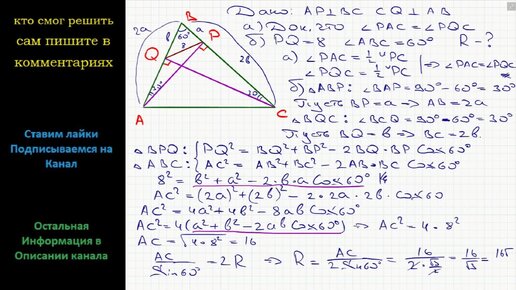 кто смог решить
сам пишите в
комментариях
Ставим лайки
Подписываемся на
Канал
Остальная
Информация в
Описании канала
Дано: AP⊥BC CQ⊥AB
а) Док, что ∠PAC = ∠PQC
б) PQ=8 ∠ABC=60° R-?
а) ∠PAC = ½ ◡PC
∠PQC = ½ ◡PC | ⇒ ∠PAC=∠PQC
б) △ABP: ∠BAP=90°-60°=30°
Пусть BP=a ⇒ AB=2a
△BQC: ∠BCQ=90°-60°=30°
Пусть BQ=в ⇒ BC=2в.
△BPQ: { PQ²=BQ²+BP²-2BQ·BP Cos60°
△ABC: { AC²=AB²+BC²-2AB·BC Cos60°
8²=в²+a²-2·в·a Cos60°
AC²=(2a)²+(2в)²-2·2a·2в·Cos60
AC²=4a²+4в²-8aв Cos60°
AC²=4(a²+в²-2aв Cos60°) ⇒ AC²=4·8²
AC=√4·8²=16
AC/Sin60°=2R ⇒ R=AC/2·Sin60°=16/2·√3/2=16/√3=16√
2a
B
60°
a
P
в
Q
8
2в
30°
30°
A
C